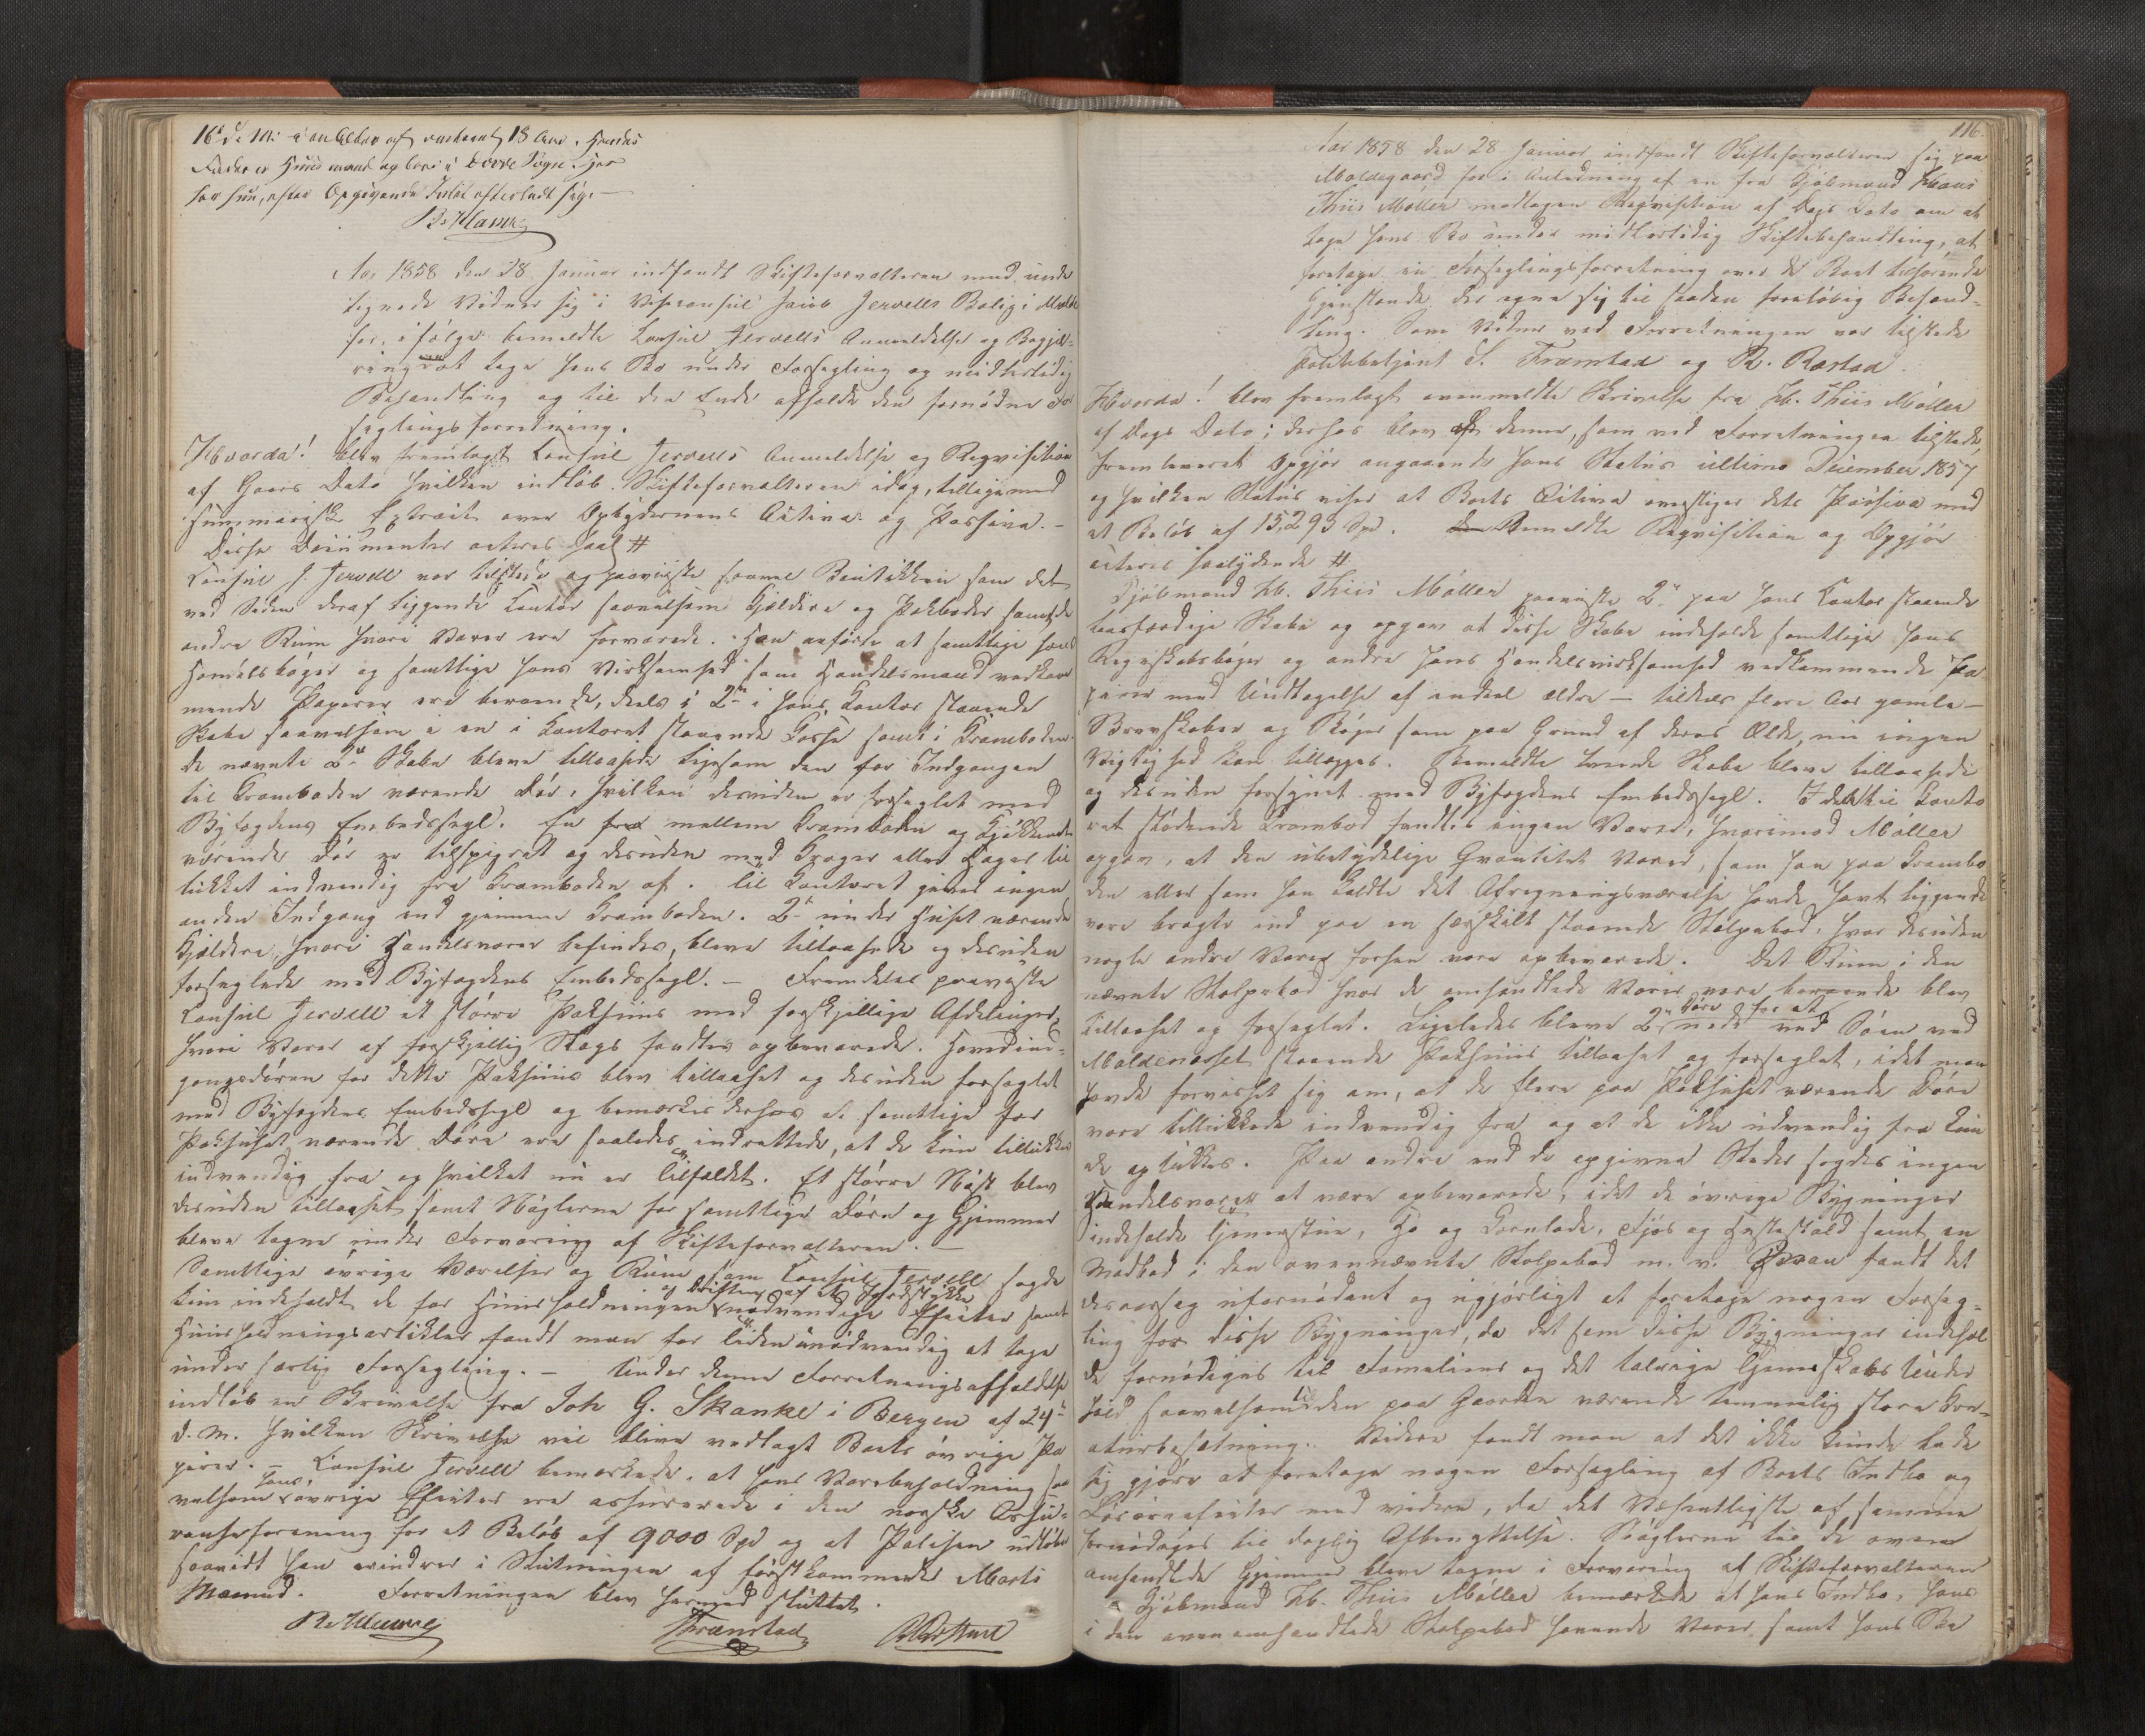 16de M: i en Alder af omtrent 13 Aar. Hendes
Fader er Huusmand og boer i Sogn. Hos
har hun, efter Opgivende Intet efterladt sig. —
Aar 1858 den 28 Januar indfandt Skifteforvalteren med unde
tegnede Vidner sig i Viceconsul Jacob Jervells Bolig i Molde
for, ifølge bemeldte Consul Jervells Anmeldelse og Begjæ-
ring om at tage hans Bo under Forsegling og midlertidig
Behandling og til den Ende afholde den fornødne For
seglingsforretning.
Hvorda! blev fremlagt Consul Jervells Anmeldelse og Reqvisition
af Gaars Dato hvilken indløb Skifteforvalteren idag, tilligemed
summarisk Extract over Opbyderens Activa og Passiva. —
Disse Documenter acteres saal #
Consul J. Jervell var tilstede og paaviste saavel Boutikken som det
ved Siden deraf liggende Contor saavelsom Kjældere og Pakboder samt de
andre Rum hvori Varer ere forvarede. Han anførte at samtlige hans
Handelsbøger og samtlige hans Virksomhed som Handelsmand vedkom
mende Papirer ere beroende, deels i 2de i hans Contor staaende
Skabe saavelsom i en i Contoret staaende Casse samt i Kramboden.
De nævnte 2de Skabe bleve tillaasede ligesom den for Indgangen
til Kramboden værende Dør, hvilken desuden er forseglet med
Byfogdens Embedssegl. En mellem Kramboden og Kjøkkenet
værende Dør er tilspigret og desuden med Kroger eller Hager til
lukket indvendig fra Kramboden af. Til Contoret gives ingen
anden Indgang end gjennem Kramboden. 2de under Huset værende
Kjældere, hvori Handelsvarer befindes, bleve tillaasede og desuden
forseglede med Byfogdens Embedssegl. — Fremdeles paaviste
Consul Jervell et større Pakhuus med forskjellige Afdelinger,
hvori Varer af forskjellig Slags fandtes opbevarede. Hovedind-
gangsdøren for dette Pakhuus blev tillaaset og desuden forseglet
med Byfogdens Embedssegl og bemærkes derhos at samtlige for
Pakhuset værende Døre ere saaledes indrettede, at de kun tillukkes
indvendig fra og hvilket nu er Tilfældet. Et større Nøst blev
desuden tillaaset samt Nøglerne for samtlige Døre og Gjemmer
bleve tagne under Forvaring af Skifteforvalteren. —
Samtlige øvrige Værelser og Rum som Consul Jervell sagde
og Driften af et Jordstykke
kun indeholdt de for Huusholdningen nødvendige Effecter samt
Huusholdningsartikler fandt man for Tiden unødvendig at tage
under særlig Forsegling. — Under denne Forretnings Afholdelse
indløb en Skrivelse fra Joh G. Skanke i Bergen af 24de
d. M. hvilken Skrivelse vil blive vedlagt Boets øvrige Pa
pirer. — Consul Jervell bemærkede, at hans Varebeholdning saa
velsom hans øvrige Effecter ere assurerede i den norske Assu-
ranceforening for et Beløb af 9000 Spd og at Polisen udløber
saavidt han erindrer i Slutningen af førstkommende Marts
Maaned. Forretningen blev hermed sluttet.
Frænstad
116.
Aar 1858 den 28 Januar indfandt Skifteforvalteren sig paa
Moldegaard for i Anledning af en fra Kjøbmand Claus
Thiis Møller modtagen Reqvisition af Dags Dato om at
tage hans Bo under midlertidig Skiftebehandling, at
foretage en Forseglingsforretning over de Boet tilhørende
Gjenstande der egne sig til saadan foreløbig Behand-
ling. Som Vidner ved Forretningen var tilstede
Politibetjent S. Frænstad og R. Røstad.
Hvorda! blev fremlagt ovenmeldte Skrivelse fra Cl. Thiis Møller
af Dags Dato; derhos blev af denne, som ved Forretningen tilstede
fremleveret Opgjør angaaende hans Status ultimo December 1857
og hvilken Status viser at Boets Activa overstiger dets Passiva med
et Beløb af 15,293 Spd. Bemeldte Reqvisition og Opgjør
acteres saalydende #
Kjøbmand Cl. Thiis Møller paaviste 2de paa hans Contor staaende
laasfærdige Skabe og opgav at disse Skabe indeholde samtlige hans
Regnskabsbøger og andre hans Handelsvirksomhed vedkommende Pa
pirer med Undtagelse af endeel ældre — tildels flere Aar gamle —
Brevskaber og Bøger som paa Grund af deres Ælde, nu ingen
Vigtighed kan tillægges. Bemeldte tvende Skabe bleve tillaasede
og desuden forsynet med Byfogdens Embedssegl. I det til Conto
ret stødende Krambod fandtes ingen Varer, hvorimod Møller
opgav, at den ubetydelige Qvantitet Varer, som han paa Krambo
den eller som han kaldte det Afregningsværelse havde havt liggende
vare bragte ind paa en særskilt staaende Stolpebod, hvor desuden
nogle andre Varer forhen vare opbevarede. Det Rum i den
nævnte Stolpebod hvor de omhandlede Varer vare beroende blev
tillaaset og forseglet. Ligeledes bleve 2de Døre for et nede ved Søen ved
Moldenæsset staaende Pakhuus tillaaset og forseglet, idet man
havde forvisset sig om, at de flere paa Pakhuset værende Døre
vare tillukkede indvendig fra og at de ikke udvendig fra kun
de oplukkes. Paa andre end de opgivne Steder sagdes ingen
Handelsvarer at være opbevarede, idet de øvrige Bygninger
indeholde Tjenerstue, Hø og Kornlade, Fjøs og Hestestald samt en
Madbod i den ovennævnte Stolpebod m. v. Man fandt det
desaarsag ufornødent og ugjørligt at foretage nogen Forseg-
ling for disse Bygninger, da det som disse Bygninger indehol
de fornødiges til Familiens og det talrige Tjenerskabs Under
hold saavelsom til den paa Gaarden værende temmelig store Kre-
aturbesætning. Videre fandt man at det ikke kunde lade
sig gjøre at foretage nogen Forsegling af Boets Indbo og
Løsøreeffecter med videre, da det Væsentligste af samme
fornødiges til daglig Afbenyttelse. Nøglerne til de oven
omhandlede Gjemmer bleve tagne i Forvaring af Skifteforvalteren
Kjøbmand Cl. Thiis Møller bemærkede at hans Indbo, hans
i den ovenomhandlede Stolpebod havende Varer samt hans Bø